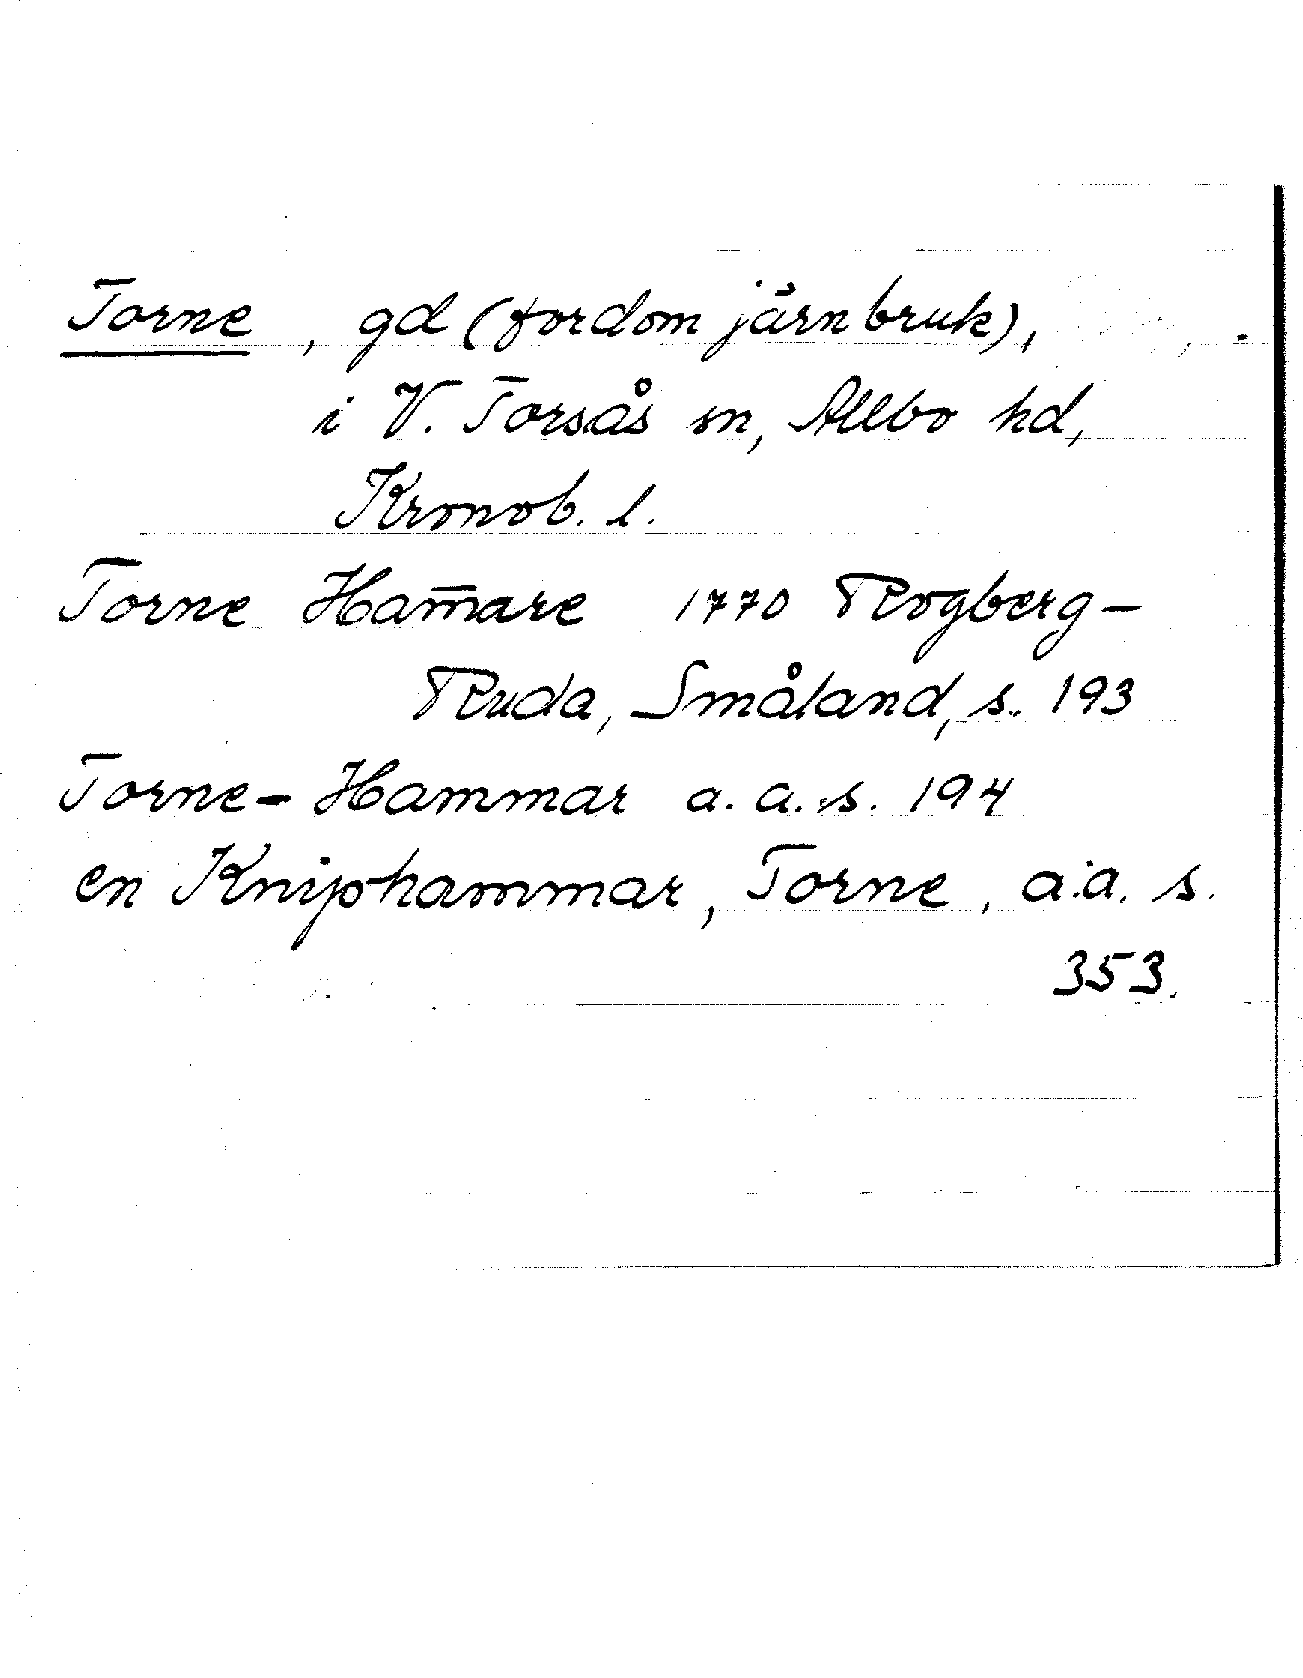 Torne, gd (fordom järnbruk),
i V. Torsås sn, Allbo hd,
Kronob. l.
Torne Ham̄are 1770 Rogberg-
Ruda, Småland, s. 193
Torne-Hammar a. a. s. 194
en Kniphammar, Torne, a.a. s.
353.